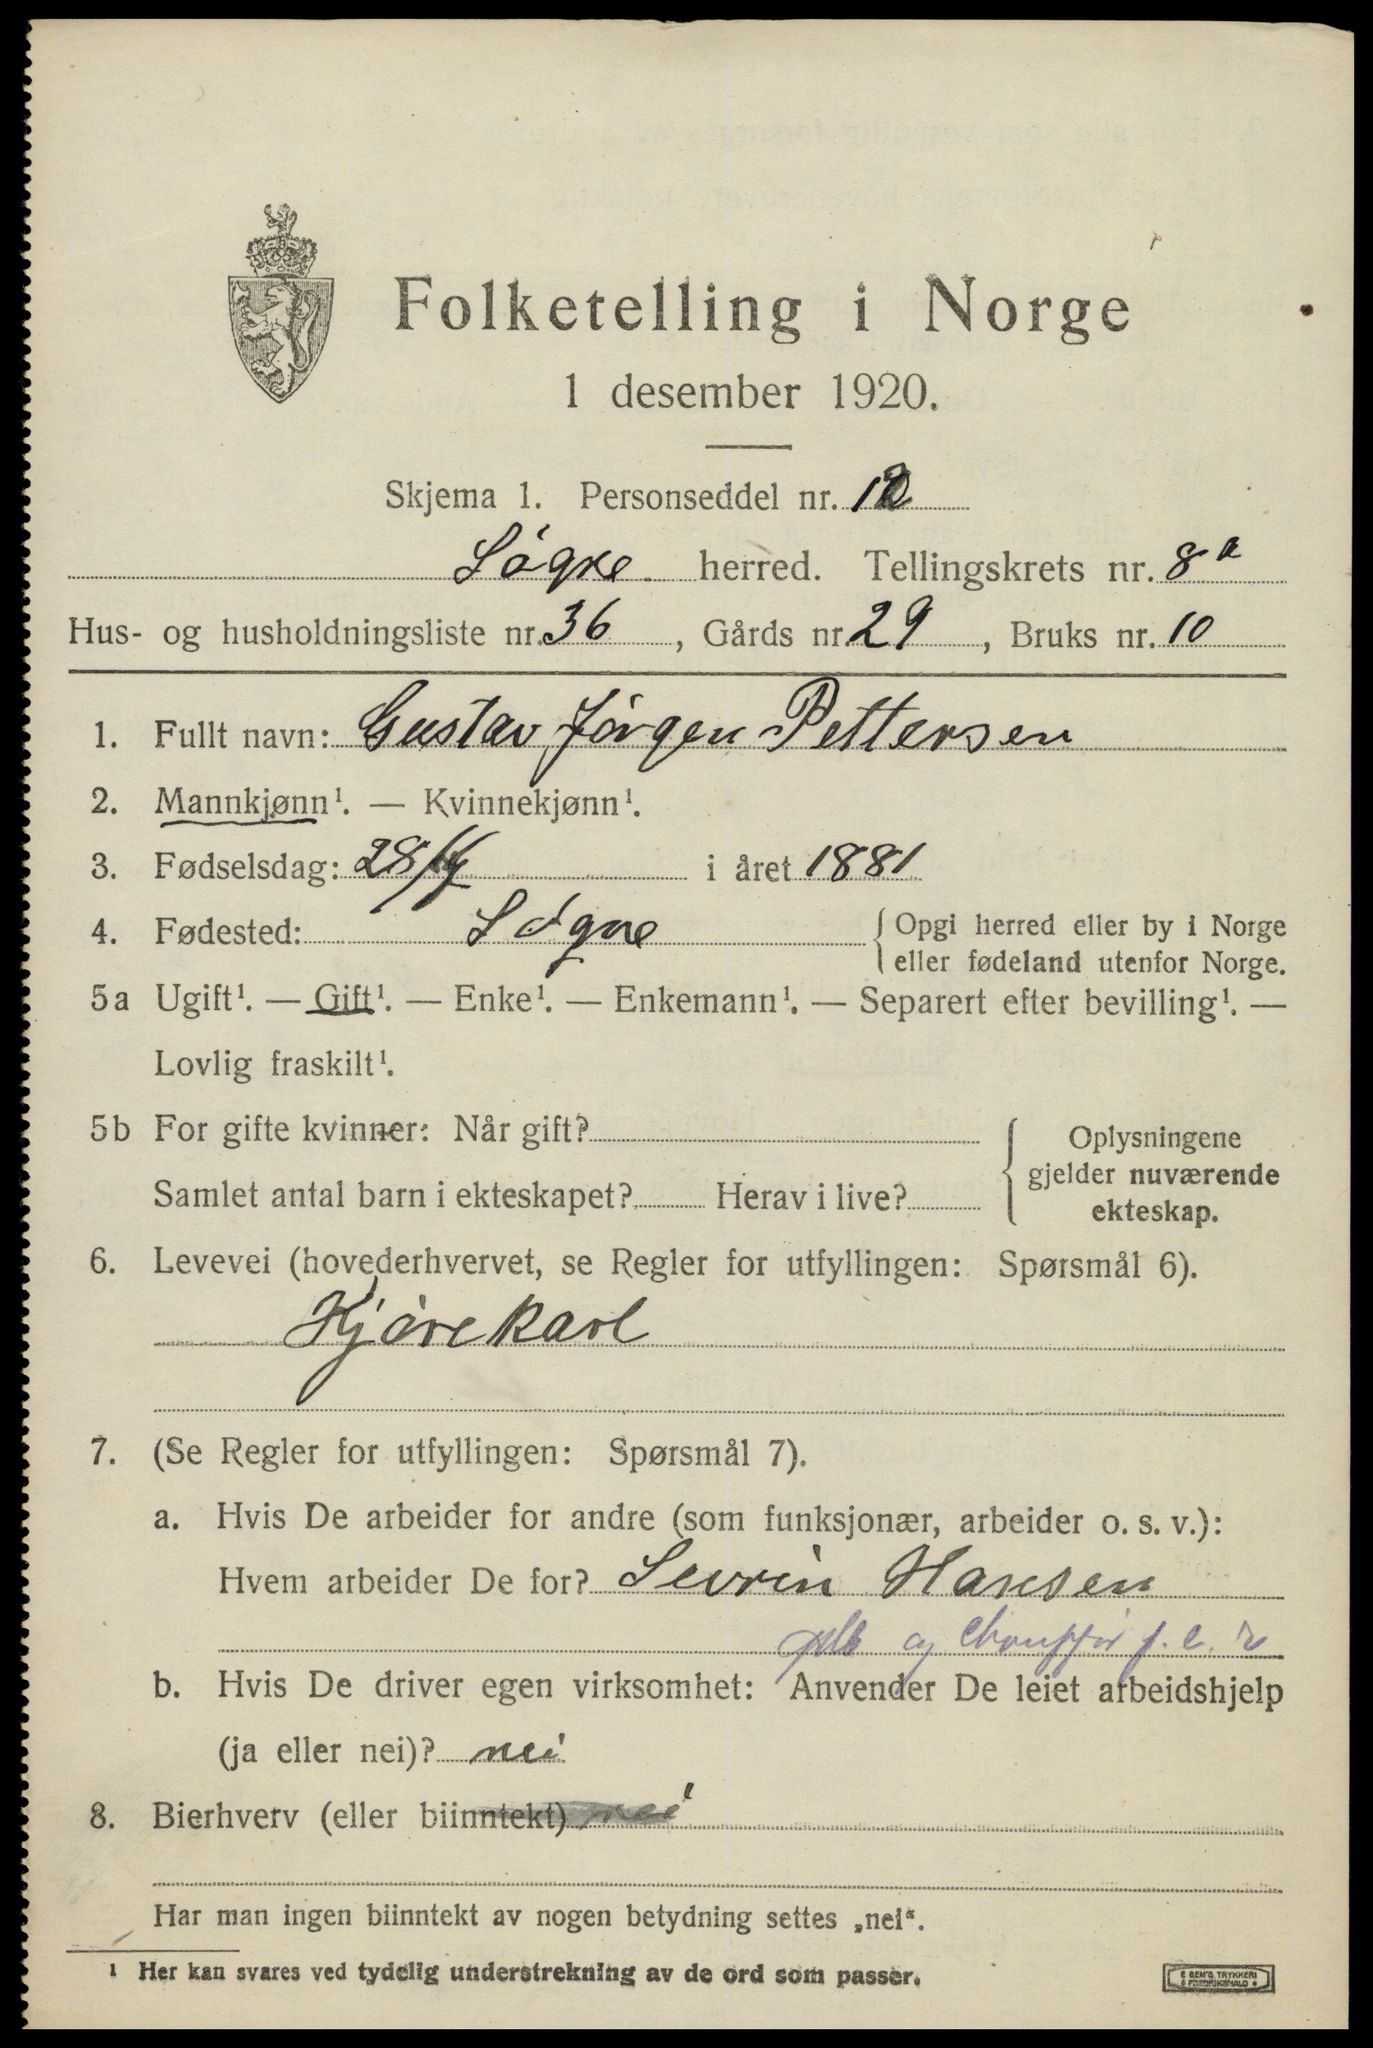 Folketelling i Norge
1 desember 1920.
Skjema 1. Personseddel nr.
Søgne herred. Tellingskrets nr. 8a
Hus- og husholdningsliste nr. 36, Gårds nr. 29, Bruks nr. 10
1. Fullt navn: Gustav Jörgen Pettersen
2. Mannkjønn¹. — Kvinnekjønn¹.
3. Fødselsdag: 28/ i året 1881
4. Fødested: Søgne { Opgi herred eller by i Norge
eller fødeland utenfor Norge.
5a Ugift¹. — Gift¹. — Enke¹. — Enkemann¹. — Separert efter bevilling¹. —
Lovlig fraskilt¹.
5b For gifte kvinner: Når gift? { Oplysningene
gjelder nuværende
Samlet antal barn i ekteskapet? Herav i live? ekteskap.
6. Levevei (hovederhvervet, se Regler for utfyllingen: Spørsmål 6).
Kjörekarl
7. (Se Regler for utfyllingen: Spørsmål 7).
a. Hvis De arbeider for andre (som funksjonær, arbeider o. s. v.):
Hvem arbeider De for? Sevrin Hansen
og
b. Hvis De driver egen virksomhet: Anvender De leiet arbeidshjelp
(ja eller nei)? nei
8. Bierhverv (eller biinntekt) nei
Har man ingen biinntekt av nogen betydning settes „nei“.
¹ Her kan svares ved tydelig understrekning av de ord som passer.
E SEM'S TRYKKERI
FREDRIKSHALD